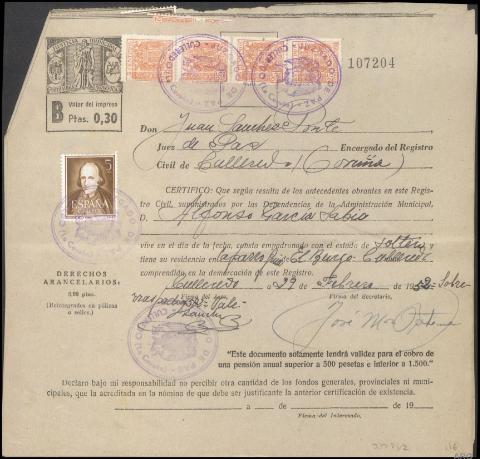 JUSTICIA MUNICIPAL
B Valor del impreso
Ptas. 0,30
107204
5
ESPAÑA
JUZGADO DE PAZ
CULLEREDO
Don Juan Sanchez Ponte
Juez de Paz Encargado del Registro
Civil de Culleredo (Coruña)
CERTIFICO: Que según resulta de los antecedentes obrantes en este Regis-
tro Civil, suministrados por las Dependencias de la Administración Municipal,
D. Alfonso Garcia Sabio
vive en el día de la fecha, consta empadronado con el estado de soltero y
tiene su residencia en El Burgo-Culleredo
comprendido en la demarcación de este Registro.
DERECHOS
ARANCELARIOS:
(Reintegrados en pólizas
o sellos.)
Culleredo a 29 Febrero 1952-Sobre
Firma del Juez, Vale- Firma del secretario,
José
"Este documento solamente tendrá validez para el cobro de
una pensión anual superior a 500 pesetas e inferior a 1.500."
Declaro bajo mi responsabilidad no percibir otra cantidad de los fondos generales, provinciales ni muni-
cipales, que la acreditada en la nómina de que debe ser justificante la anterior certificación de existencia.
a de de 19
Firma del Interesado.